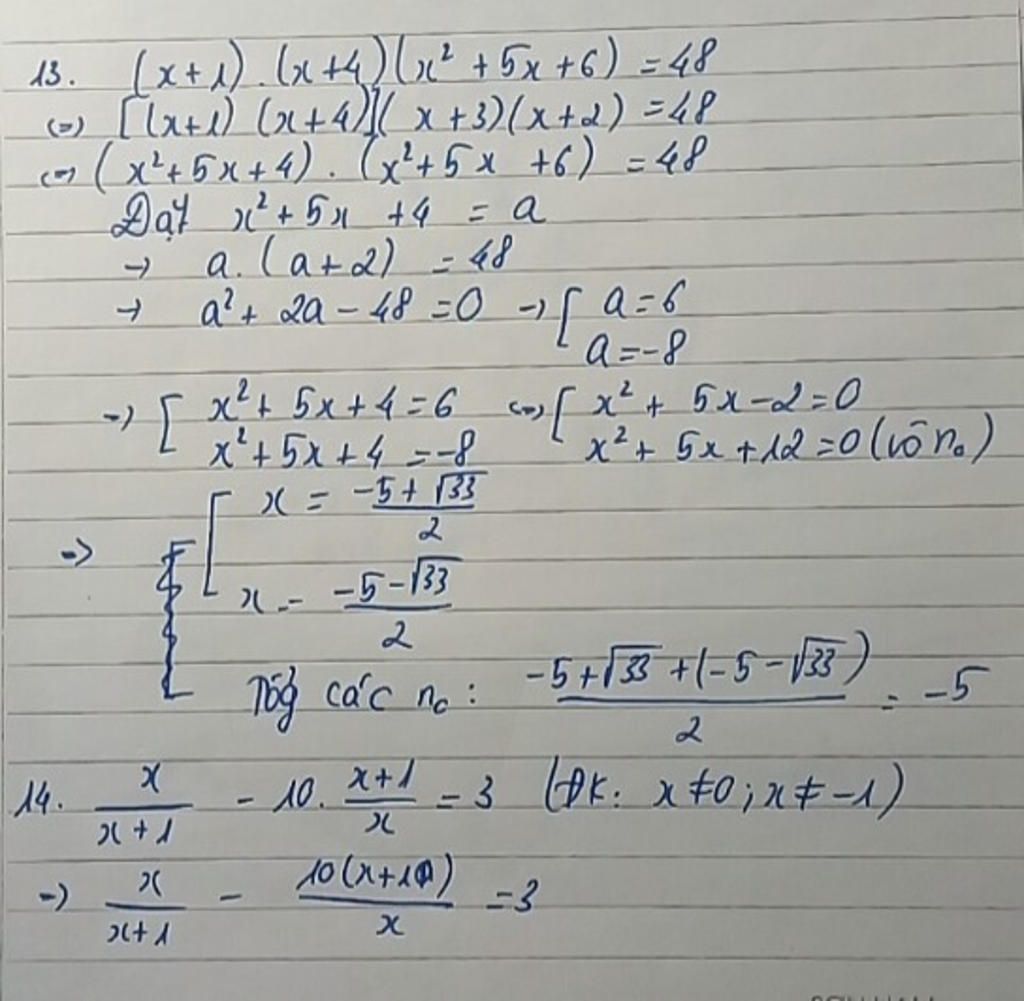 13. (x+1).(x+4)(x² + 5x + 6) = 48
<=> [(x+1)(x+4)](x+3)(x+2) = 48
<=> (x² + 5x + 4).(x² + 5x + 6) = 48
Đặt x² + 5x + 4 = a
→ a.(a+2) = 48
→ a² + 2a - 48 = 0 → [ a = 6
a = -8
→ [ x² + 5x + 4 = 6 <=> [ x² + 5x - 2 = 0
x² + 5x + 4 = -8 x² + 5x + 12 = 0 (vô n₀)
=> [ x = (-5 + √33)/2
x = (-5 - √33)/2
Tổg các n₀ : (-5 + √33 + (-5 - √33))/2 = -5
14. x/(x+1) - 10. (x+1)/x = 3 (ĐK: x ≠ 0 ; x ≠ -1)
=> x/(x+1) - 10(x+1)/x = 3